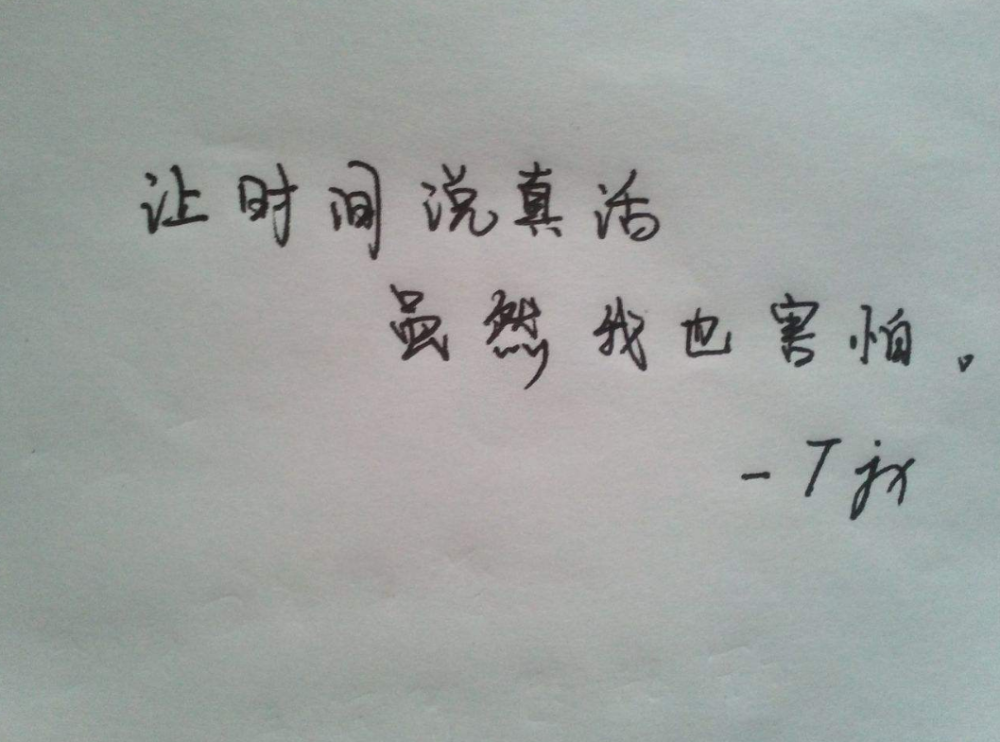 让时间说真话
虽然我也害怕.
- Tjx